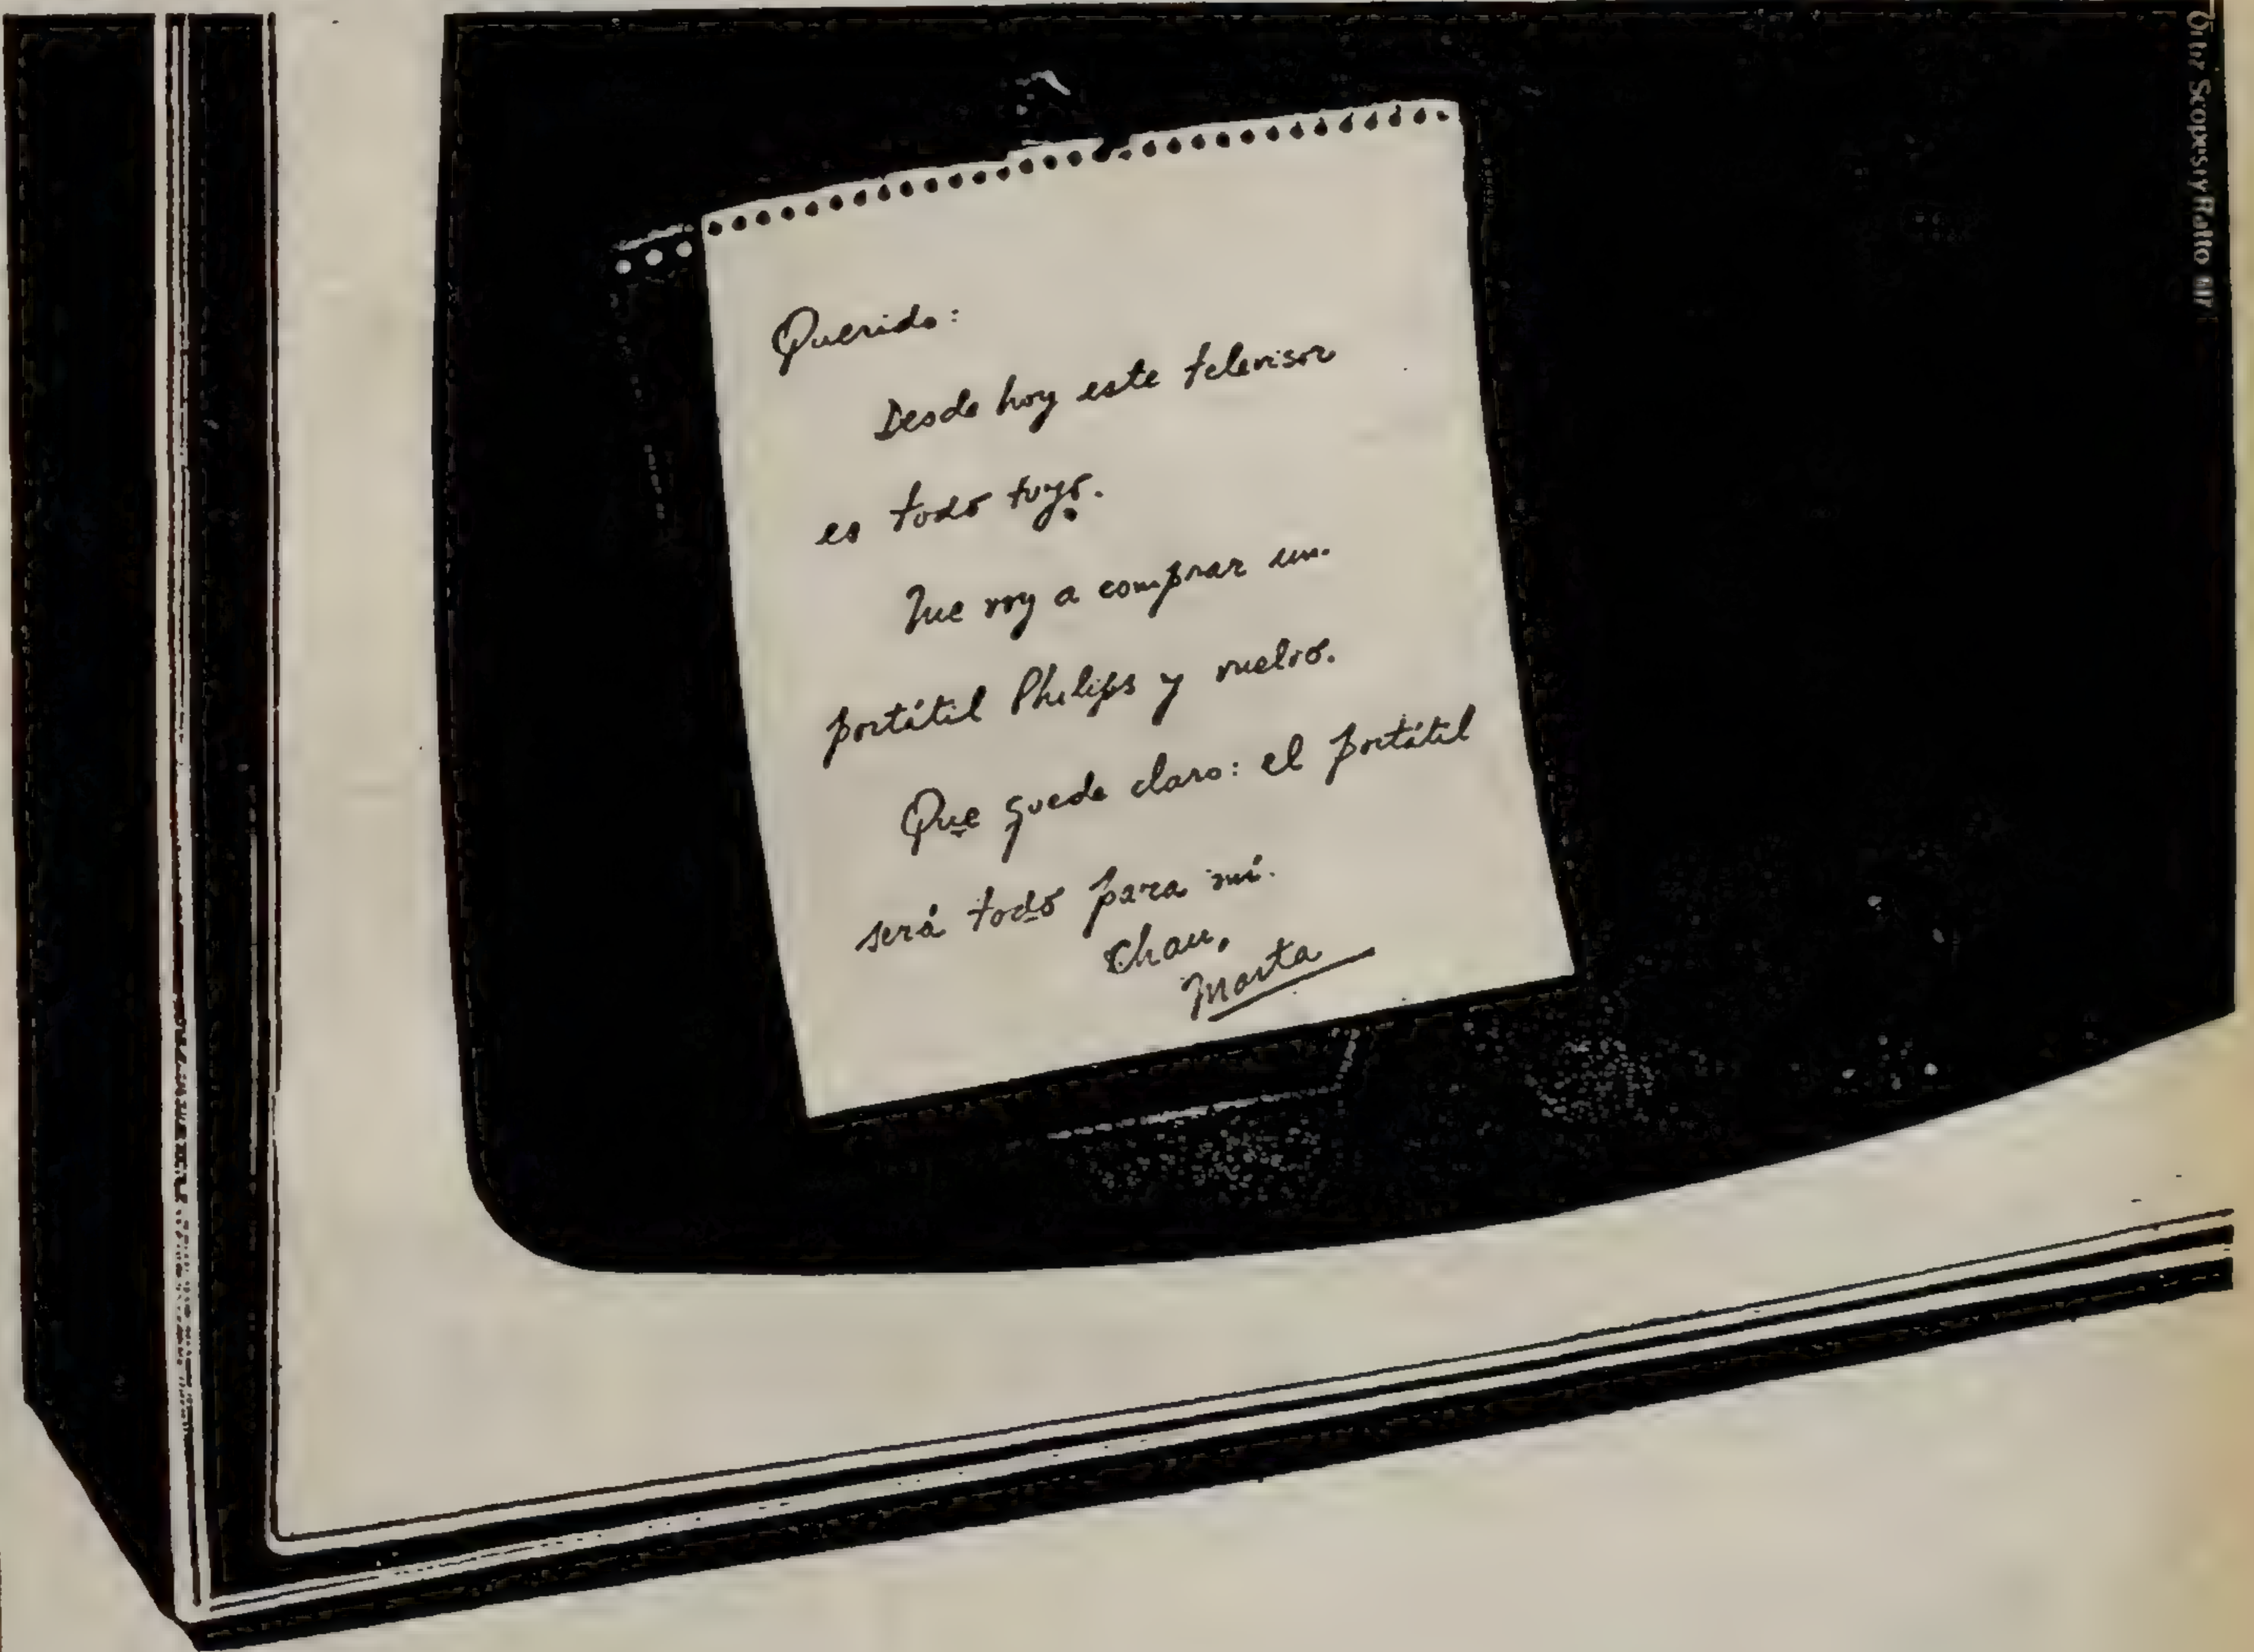 Querido:
Desde hoy este televisor
es todo tuyo.
Me voy a comprar un
portátil Philips y vuelvo.
Que quede claro: el portátil
será todo para mí.
Chau,
Marta